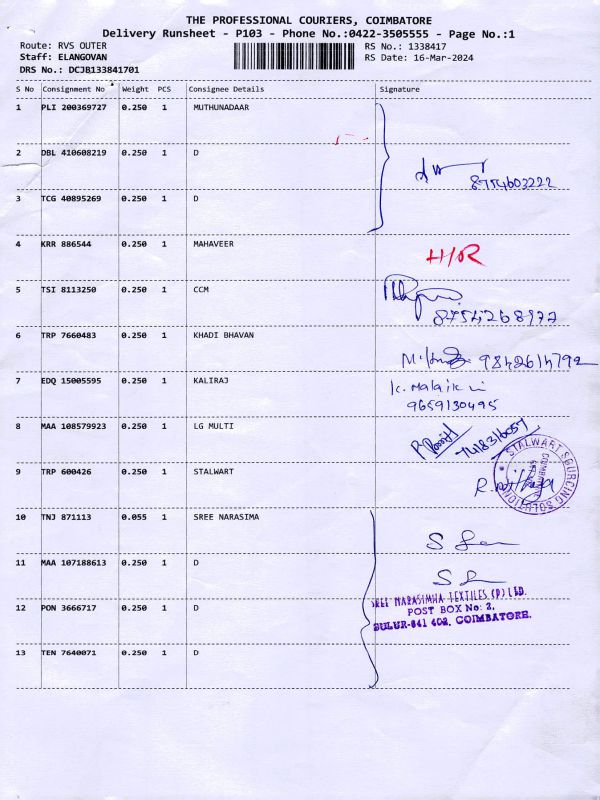 THE PROFESSIONAL COURIERS, COIMBATORE
Delivery Runsheet - P103 - Phone No.:0422-3505555 - Page No.:1
Route: RVS OUTER
RS No.: 1338417
Staff: ELANGOVAN
RS Date: 16-Mar-2024
DRS No.: DCJB133841701
S No Consignment No Weight PCS Consignee Details Signature
1 PLI 200369727 0.250 1 MUTHUNADAAR
2 DBL 410608219 0.250 1 D
8754603222
3 TCG 40895269 0.250 1 D
4 KRR 886544 0.250 1 MAHAVEER H/R
5 TSI 8113250 0.250 1 CCM
8754268977
6 TRP 7660483 0.250 1 KHADI BHAVAN
9842614792
7 EDQ 15005595 0.250 1 KALIRAJ
9659130495
8 MAA 108579923 0.250 1 LG MULTI
7418316057
9 TRP 600426 0.250 1 STALWART
STALWART SOURCING SOLUTIONS
10 TNJ 871113 0.055 1 SREE NARASIMA
11 MAA 107188613 0.250 1 D
SREE NARASIMHA TEXTILES (P) LTD.
12 PON 3666717 0.250 1 D
POST BOX No: 2,
SULUR-641 402, COIMBATORE.
13 TEN 7640071 0.250 1 D